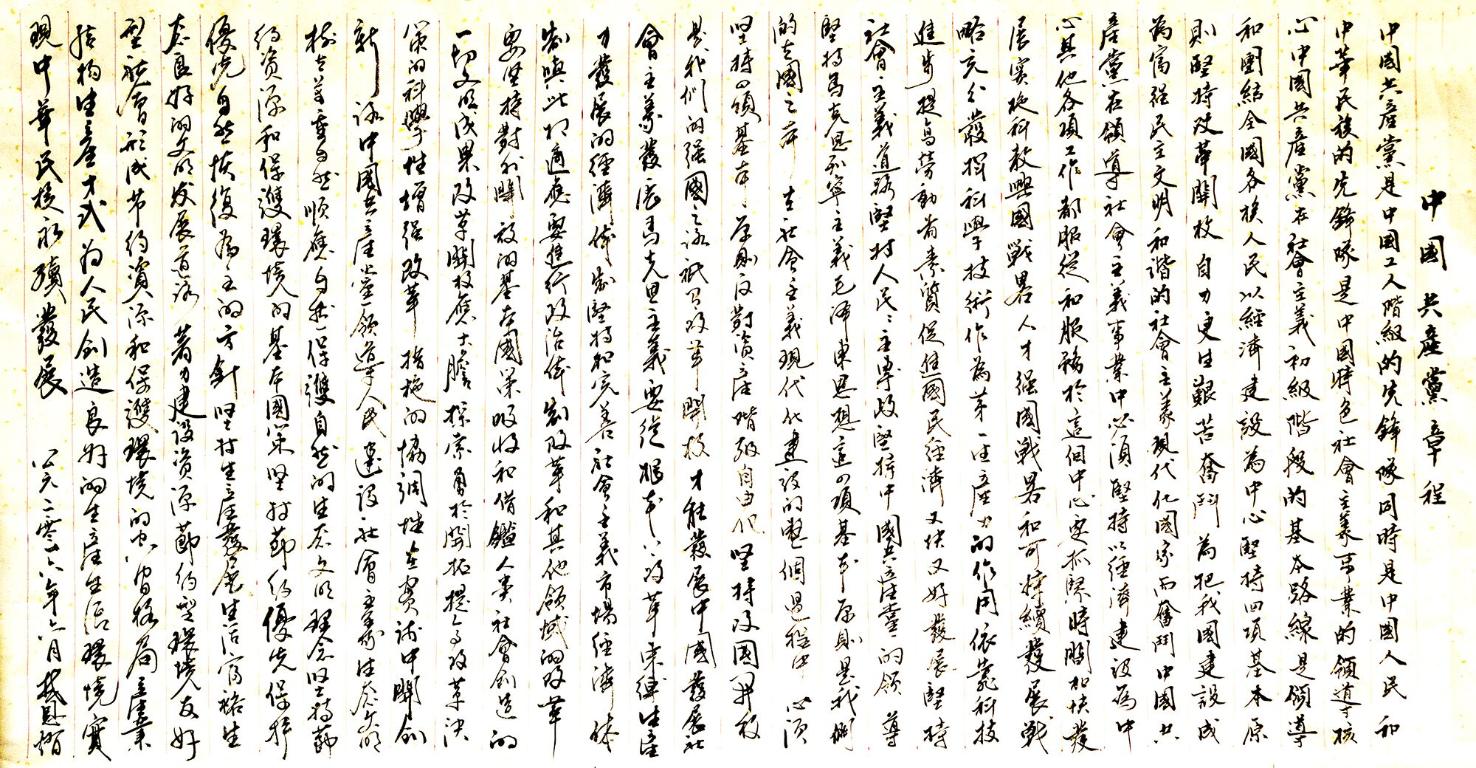 中國共產黨章程
中國共產黨是中國工人階級的先鋒隊同時是中國人民和
中華民族的先鋒隊是中國特色社會主義事業的領導核
心中國共產黨在社會主義初級階段的基本路線是領導
和團結全國各族人民以經濟建設為中心堅持四項基本原
則堅持改革開放自力更生艱苦奮鬥為把我國建設成
為富強民主文明和諧的社會主義現代化國家而奮鬥中國共
產黨在領導社會主義事業中必須堅持以經濟建設為中
心其他各項工作都服從和服務於這個中心要抓緊時間加快發
展實施科教興國戰略人才強國戰略和可持續發展戰
略充分發揮科學技術作為第一生產力的作用依靠科技
進步提高勞動者素質促進國民經濟又快又好發展堅持
社會主義道路堅持人民民主專政堅持中國共產黨的領導
堅持馬克思列寧主義毛澤東思想這四項基本原則是我們
的立國之本 在社會主義現代化建設的整個過程中 必須
堅持四項基本原則反對資產階級自由化堅持改國開放
是我們的強國之路祇有改革開放才能發展中國發展社
會主義發展馬克思主義要從根本上改革束縛生產
力發展的經濟体制堅持和完善社會主義市場經濟体
制與此相適應要進行政治体制改革和其他領域的改革
要堅持對外開放的基本國策吸收和借鑑人类社會創造的
一切文明成果改革開放應大膽探索勇於開拓提高改革決
策的科學性增强改革措施的協調性在實踐中開創
新路中國共產黨領導人民建設社會主義生态文明
樹立尊重自然順應自然保護自然的生态文明理念堅持節
約资源和保護環境的基本國策坚持節約優先保护
優先自然恢復為主的方針坚持生產發展生活富裕生
态良好的文明发展道路 著力建設资源節約型環境友好
型社會形成节约資源和保護環境的空間格局產業
结构生產方式為人民創造良好的生產生活環境實
現中華民族永續發展 公元二零一六年六月